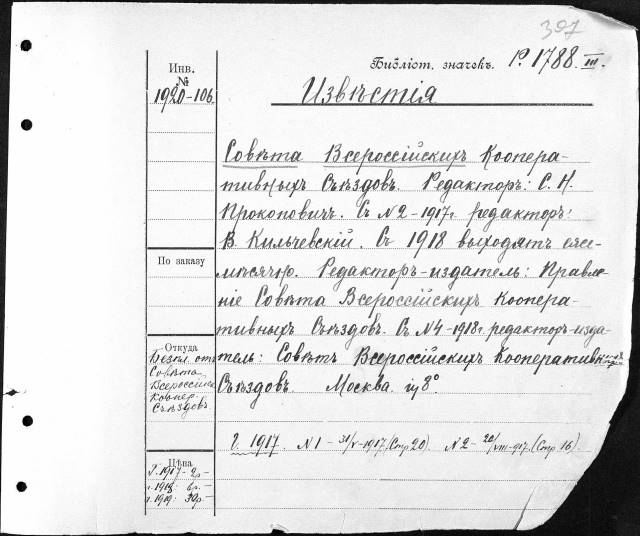 397
Библіот. значекъ. Р. 1788. III.
Инв.
№
1920-106.
Извѣстія
Совѣта Всероссійскихъ Коопера-
тивныхъ Съѣздовъ. Редакторъ: С. Н.
Прокоповичъ. Съ №2-1917г. редакторъ:
В. Кильчевскій. Съ 1918 выходятъ еже-
мѣсячно. Редакторъ-издатель: Правле-
ніе Совѣта Всероссійскихъ Коопера-
тивныхъ Съѣздовъ. Съ №4-1918г. редакторъ-изда-
тель: Совѣтъ Всероссійскихъ Кооперативныхъ
Съѣздовъ. Москва. 8°
г. 1917. №1 - 31/V-1917. (Стр 20). №2 - 20/VIII-917. (Стр. 16).
По заказу
Откуда
Безпл. отъ
Совѣта
Всероссійс
Коопер.
Съѣздовъ
Цѣна
г. 1917 - 2р -
г. 1918: 6р. -
г. 1919: 30р -